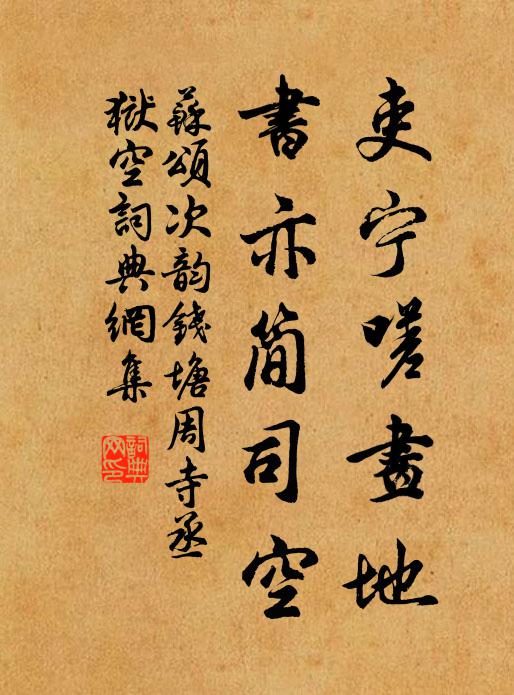 吏宁嗟畫地
書亦简司空
蘇頌次韵錢塘周寺丞
獄空詞典網集
詞典网印